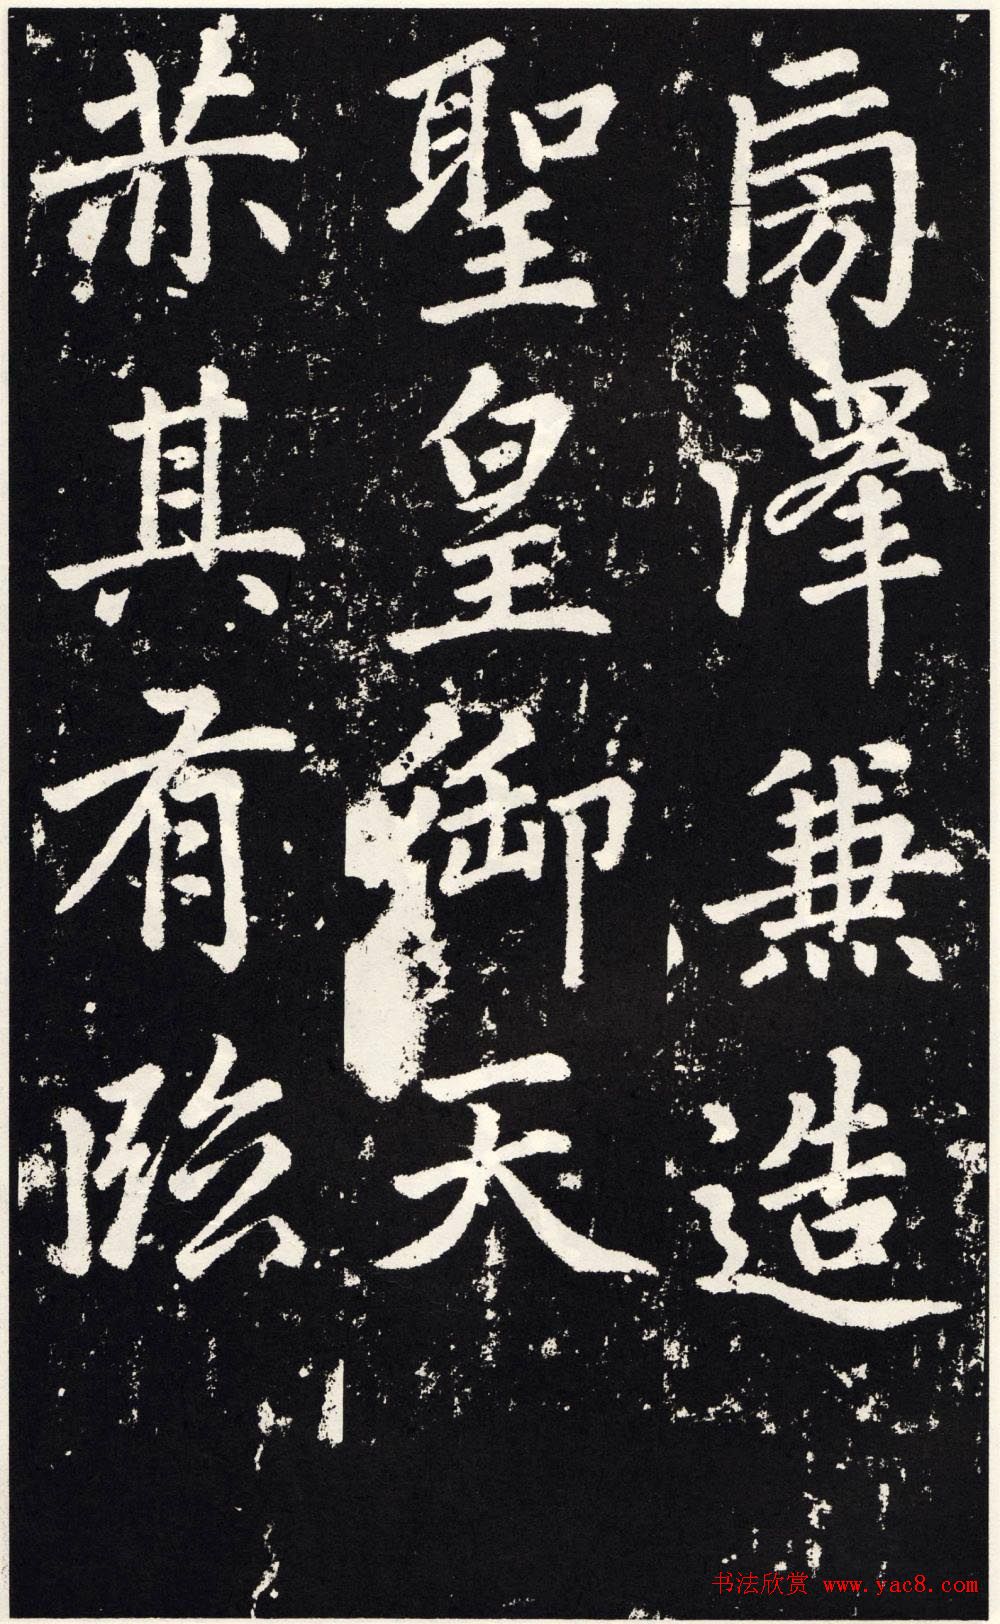 房澤兼造
聖皇御天
其有臨
书法欣赏 www.yac8.com